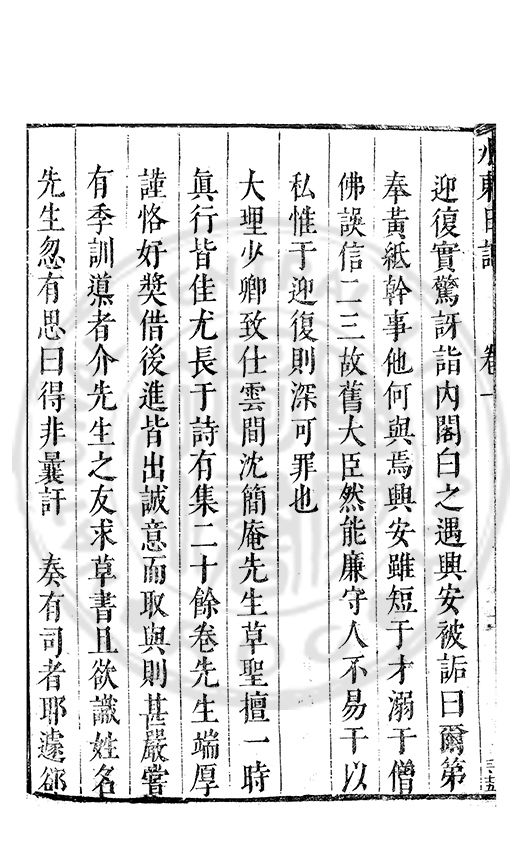 水東日記　卷一
迎復實驚訝詣內閣白之遇興安被詬曰爾第
奉黃紙幹事他何與焉興安雖短于才溺于僧
佛誤信二三故舊大臣然能廉守人不易干以
私惟于迎復則深可罪也
大理少卿致仕雲間沈簡庵先生草聖擅一時
眞行皆佳尤長于詩有集二十餘卷先生端厚
謹恪好奬借後進皆出誠意而取與則甚嚴嘗
有季訓導者介先生之友求草書且欲識姓名
先生忽有思曰得非曩訐　奏有司者耶遽卻